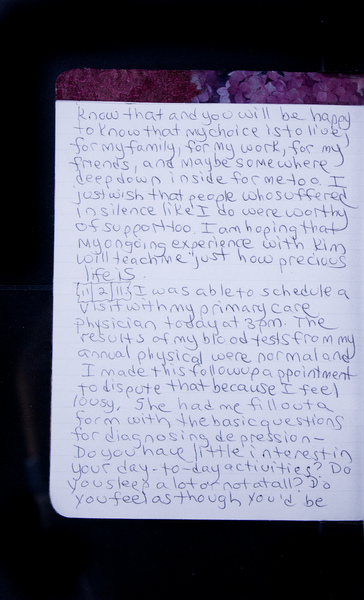 know that and you will be happy
to know that my choice is to live
for my family, for my work, for my
friends, and maybe somewhere
deep down inside for me too. I
just wish that people who suffered
in silence like I do were worthy
of support too. I am hoping that
my ongoing experience with Kim
will teach me just how precious
life is.
11/2/11 I was able to schedule a
visit with my primary care
physician today at 3pm. The
results of my blood tests from my
annual physical were normal and
I made this followup appointment
to dispute that because I feel
lousy. She had me fill out a
form with the basic questions
for diagnosing depression -
Do you have little interest in
your day-to-day activities? Do
you sleep a lot or not at all? Do
you feel as though you'd be